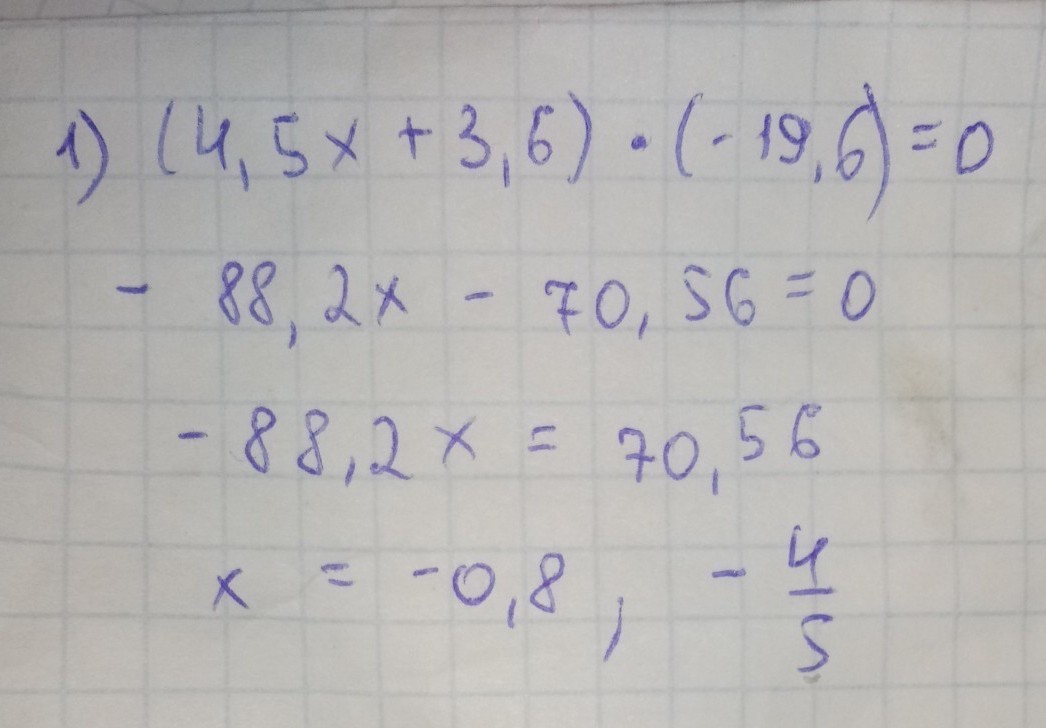 1) (4,5x + 3,6) · (-19,6) = 0
- 88,2x - 70,56 = 0
-88,2x = 70,56
x = -0,8, -4/5